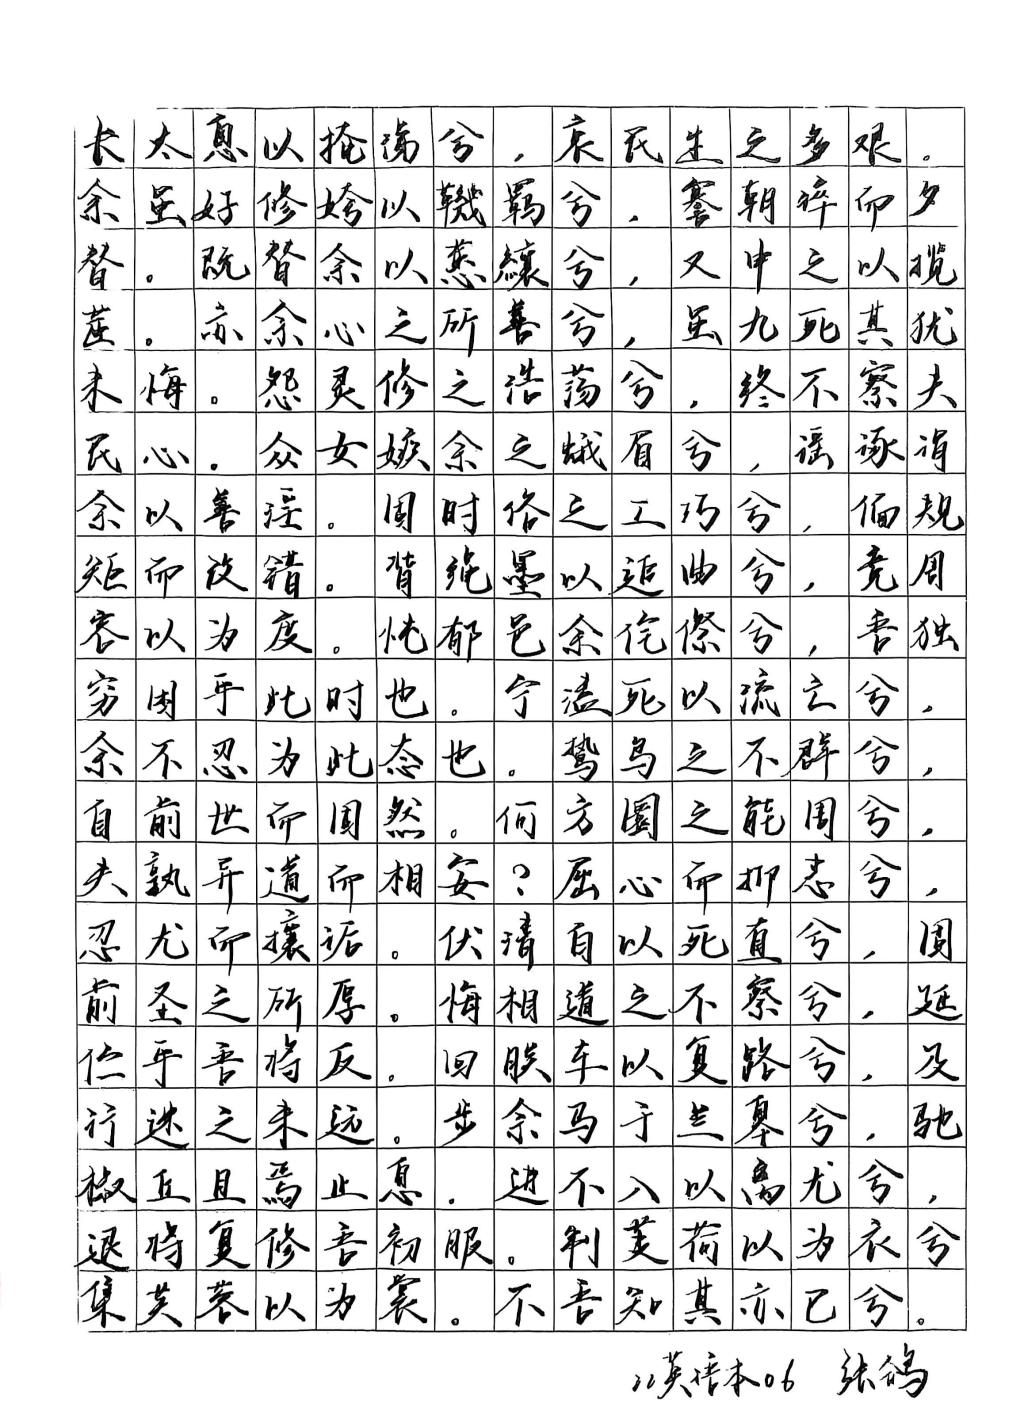 长太息以掩涕兮，哀民生之多艰。
余虽好修姱以鞿羁兮，謇朝谇而夕
替。既替余以蕙纕兮，又申之以揽
茝。亦余心之所善兮，虽九死其犹
未悔。怨灵修之浩荡兮，终不察夫
民心。众女嫉余之蛾眉兮，谣诼谓
余以善淫。固时俗之工巧兮，偭规
矩而改错。背绳墨以追曲兮，竞周
容以为度。忳郁邑余侘傺兮，吾独
穷困乎此时也。宁溘死以流亡兮，
余不忍为此态也。鸷鸟之不群兮，
自前世而固然。何方圜之能周兮，
夫孰异道而相安？屈心而抑志兮，
忍尤而攘诟。伏清白以死直兮，固
前圣之所厚。悔相道之不察兮，延
伫乎吾将反。回朕车以复路兮，及
行迷之未远。步余马于兰皋兮，驰
椒丘且焉止息。进不入以离尤兮，
退将复修吾初服。制芰荷以为衣兮
集芙蓉以为裳。不吾知其亦已兮。
22英语本06 张鸽